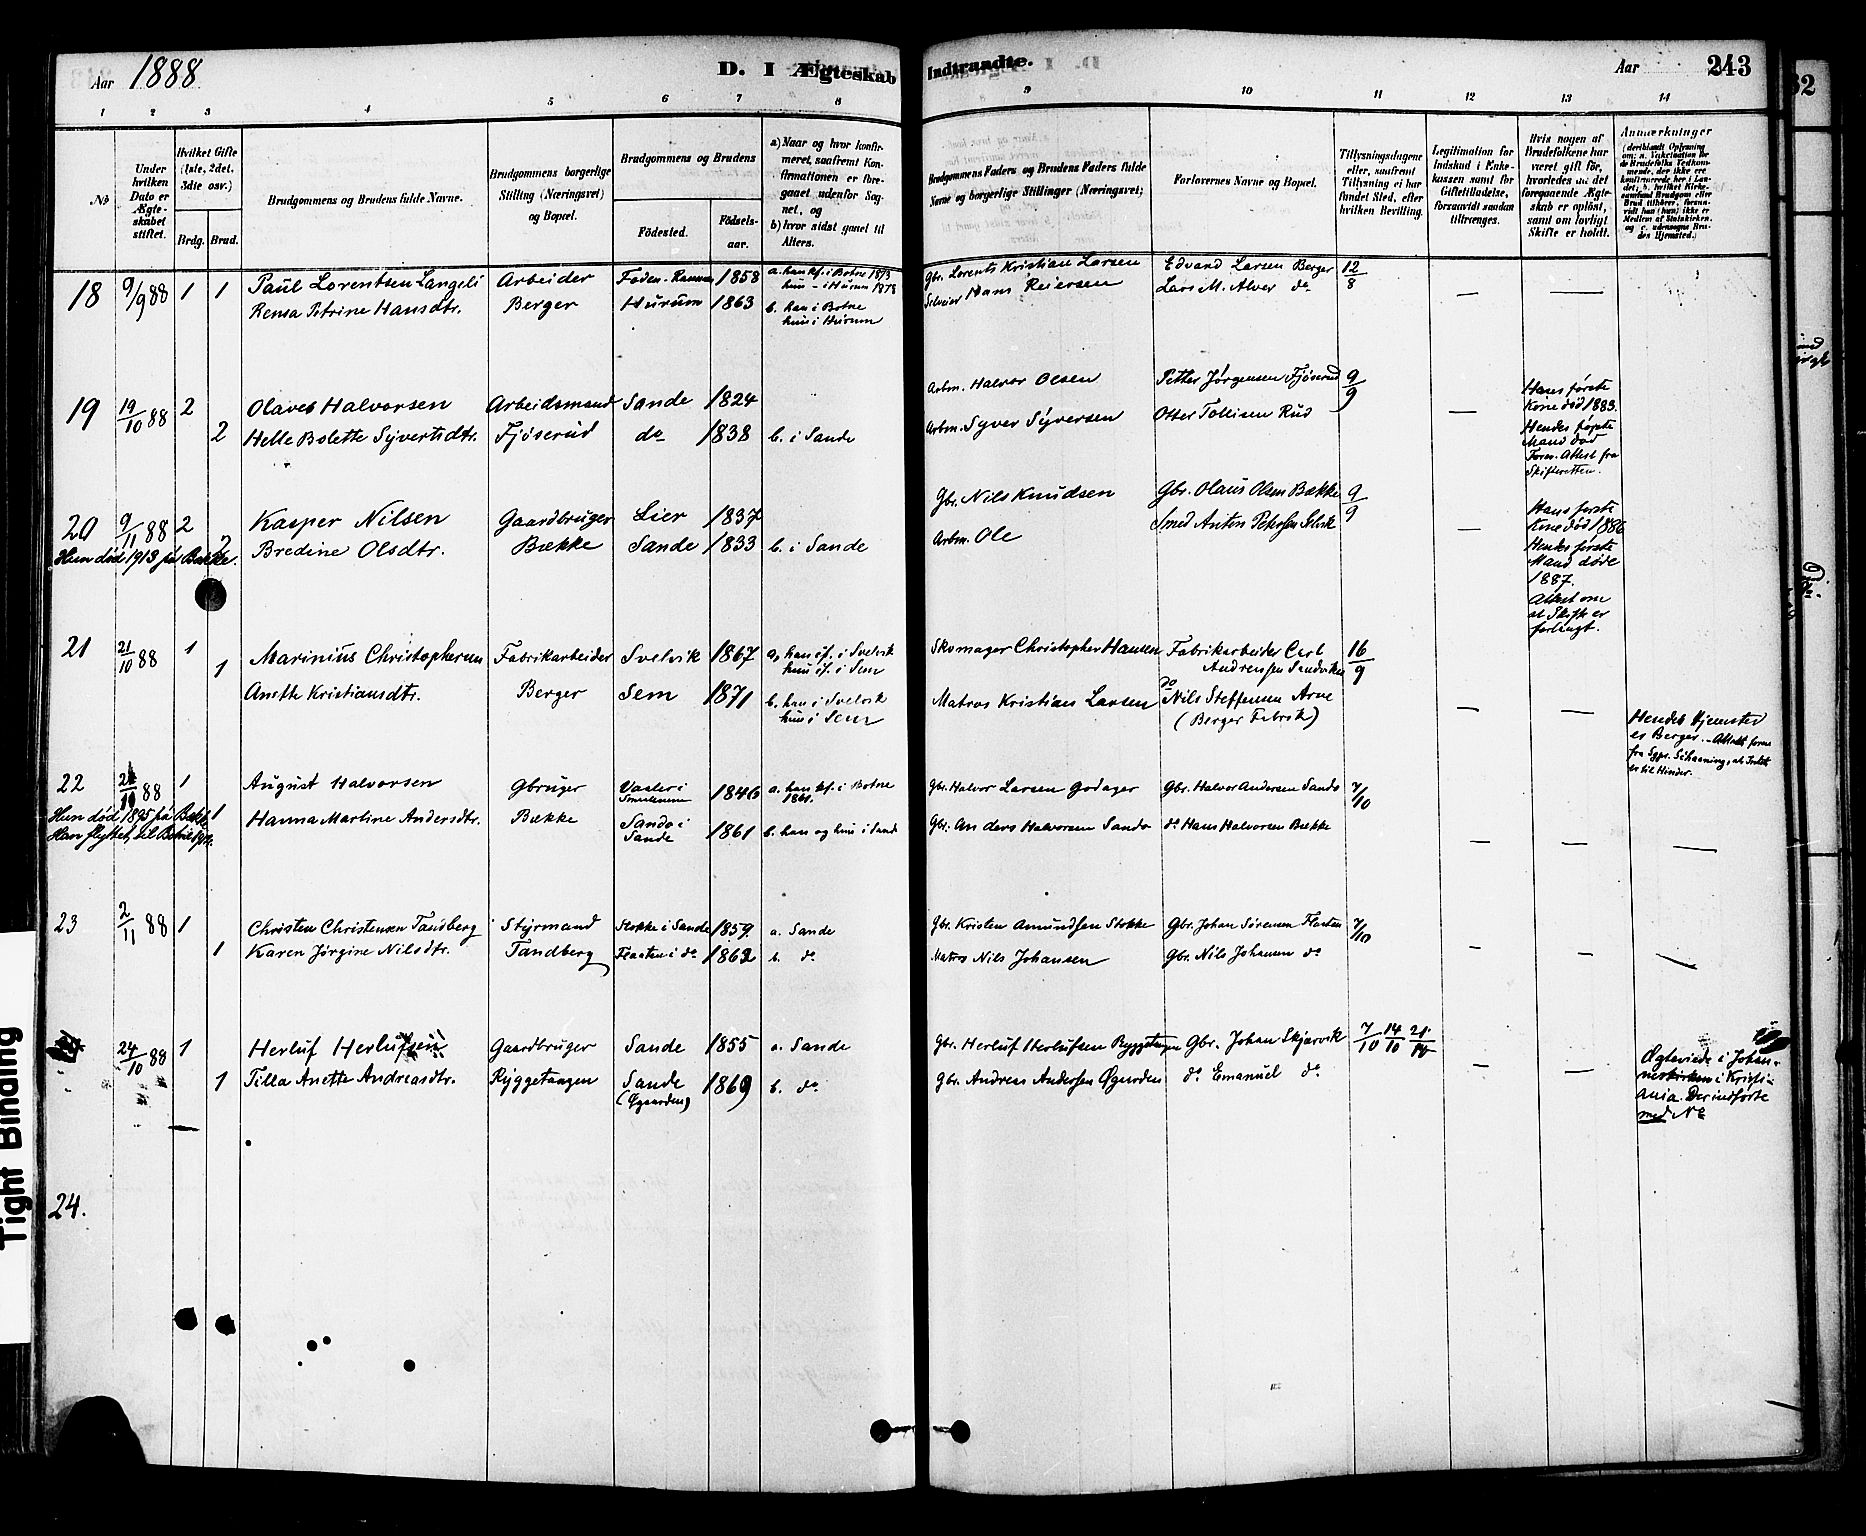 Aar 1888
D. I Ægteskab Indtraadte.
Aar 243
1 2 3 4 5 6 7 8 9 10 11 12 13 14
No
Under hvilken Dato er Ægteskabet stiftet.
Hvilket Gifte (1ste, 2det, 3die osv.)
Brdg. Brud.
Brudgommens og Brudens fulde Navne.
Brudgommens borgerlige Stilling (Næringsvei) og Bopæl.
Brudgommens og Brudens
Födested.
Födsels-aar.
a) Naar og hvor konfirmeret, saafremt Konfirmationen er foregaaet udenfor Sognet, og
b) hvor sidst gaaet til Alters.
Brudgommens Faders og Brudens Faders fulde Navne og borgerlige Stillinger (Næringsvei).
Forlovernes Navne og Bopæl.
Tillysningsdagene eller, saafremt Tillysning ei har fundet Sted, efter hvilken Bevilling.
Legitimation for Indskud i Enkekassen samt for Giftetilladelse, forsaavidt saadan tiltrænges.
Hvis nogen af Brudefolkene har været gift för, hvorledes da det foregaaende Ægteskab er oplöst, samt om lovligt Skifte er holdt.
Anmærkninger
18 9/9 88 1 1 Paul Lorentsen Langeli Arbeider 1858 a. han kf. i Botne 1873 Gbr. Lorents Kristian Larsen Edvard Larsen Berger 12/8
hun - i Hurum 1878
Rensa Petrine Hansdtr. Berger Hurum 1863 b. han i Botne Hans Reiersen Lars M. Alver do
hun i Hurum
19 19/10 88 2 Olaves Halvorsen Arbeidsmand Sande 1824 Arbm. Halvor Olsen Petter Jørgensen Fjøserud 9/9
2 Helle Bolette Syvertsdtr. Fjøserud do 1838 b. i Sande Arbm. Syver Syversen Otter Tollisen Rud
Hans første
Kone død 1883.
Hendes første
Mand død
Form. Attest fra
Skifteretten.
20 9/11 88 2 Kasper Nilsen Gaardbruger Lier 1837 Gbr. Nils Knudsen Gbr. Olaus Olsen Bække 9/9
2 Bredine Olsdtr. Bække Sande 1833 b. i Sande Arbm. Ole Smed Anton
Hun død 1913 på Bække.
Hans første
Kone død 1886
Hendes første
Mand døde
1887.
Attest om
at Skifte er
forlangt.
21 21/10 88 1 Marinius Christophersen Fabrikarbeider Svelvik 1867 a, han cf. i Svelvik Skomager Christopher Hansen Fabrikarbeider Carl 16/9
1 hun cf. i Sem Andreasen Sandviken
Anette Kristiansdtr. Berger Sem 1871 b. han i Svelvik Matros Kristian Larsen do Nils Steffensen Arve
hun i Sem (Berger Fabrik)
Hendes Hjemsted
er Berger. - Attest
fra Sgpr. Schaaning, at Intet
er til Hinder.
22 88 1 August Halvorsen Gbruger Vaaler i 1846 a. han kf. i Botne Gbr. Halvor Larsen Godager Gbr. Halvor Andersen Sando 7/10
Smaalenene 1861.
Hun død 1895 på Bække
1 Hanna Martine Andersdtr. Bække Sando i Sande 1861 b. han og hun i Sande Gbr. Anders Halvorsen Sando do Hans Halvorsen Bække
Han flyttet til
23 2/11 88 1 Christen Christensen Tandberg Styrmand Stokke i Sande 1859. a. Sande Gbr. Kristen Amundsen Stokke Gbr. Johan Sørensen Flaaten 7/10
1 Karen Jørgine Nilsdtr. Tandberg Flaaten i do 1862 b. do Matros Nils Johansen Gbr. Nils Johansen do
24/10 88 1 Herluf Herlufsen Gaardbruger Sande 1855 a. Sande Gbr. Herluf Herlufsen Ryggetangen Gbr. Johan Skjærvik 7/10 14/10 21/10
1 Tilla Anette Andreasdtr. Ryggetangen Sande 1869 b. do Gbr. Andreas Andersen Øgaarden do Emanuel do
(Øgaarden)
Ægteviede i Johan-
neskirken i Kristi-
ania. Der indførte
med No
24.
Tight Binding